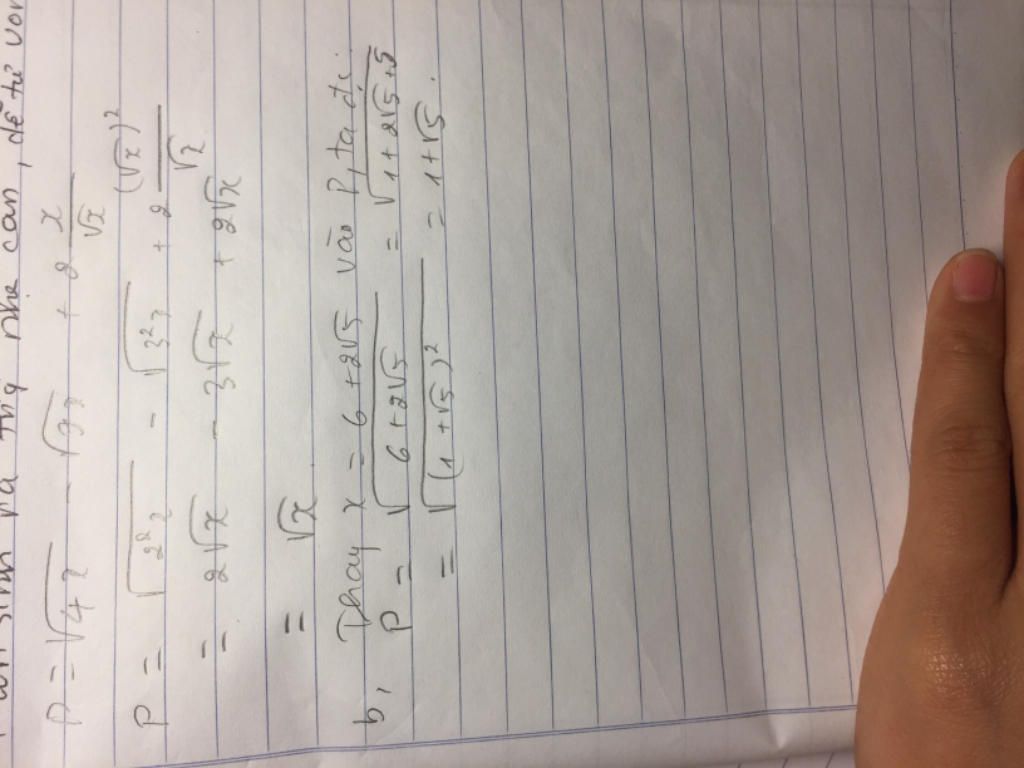 sinh ra trg nhe can, để từ vơ
P = √4x - √9x + 2 x/√x
P = √2²x - √3²x + 2 (√x)²/√x
= 2√x - 3√x + 2√x
= √x
b, Thay x = 6 + 2√5 vào P, ta đc:
P = √6+2√5 = √1+2√5+5
= √(1+√5)² = 1+√5.